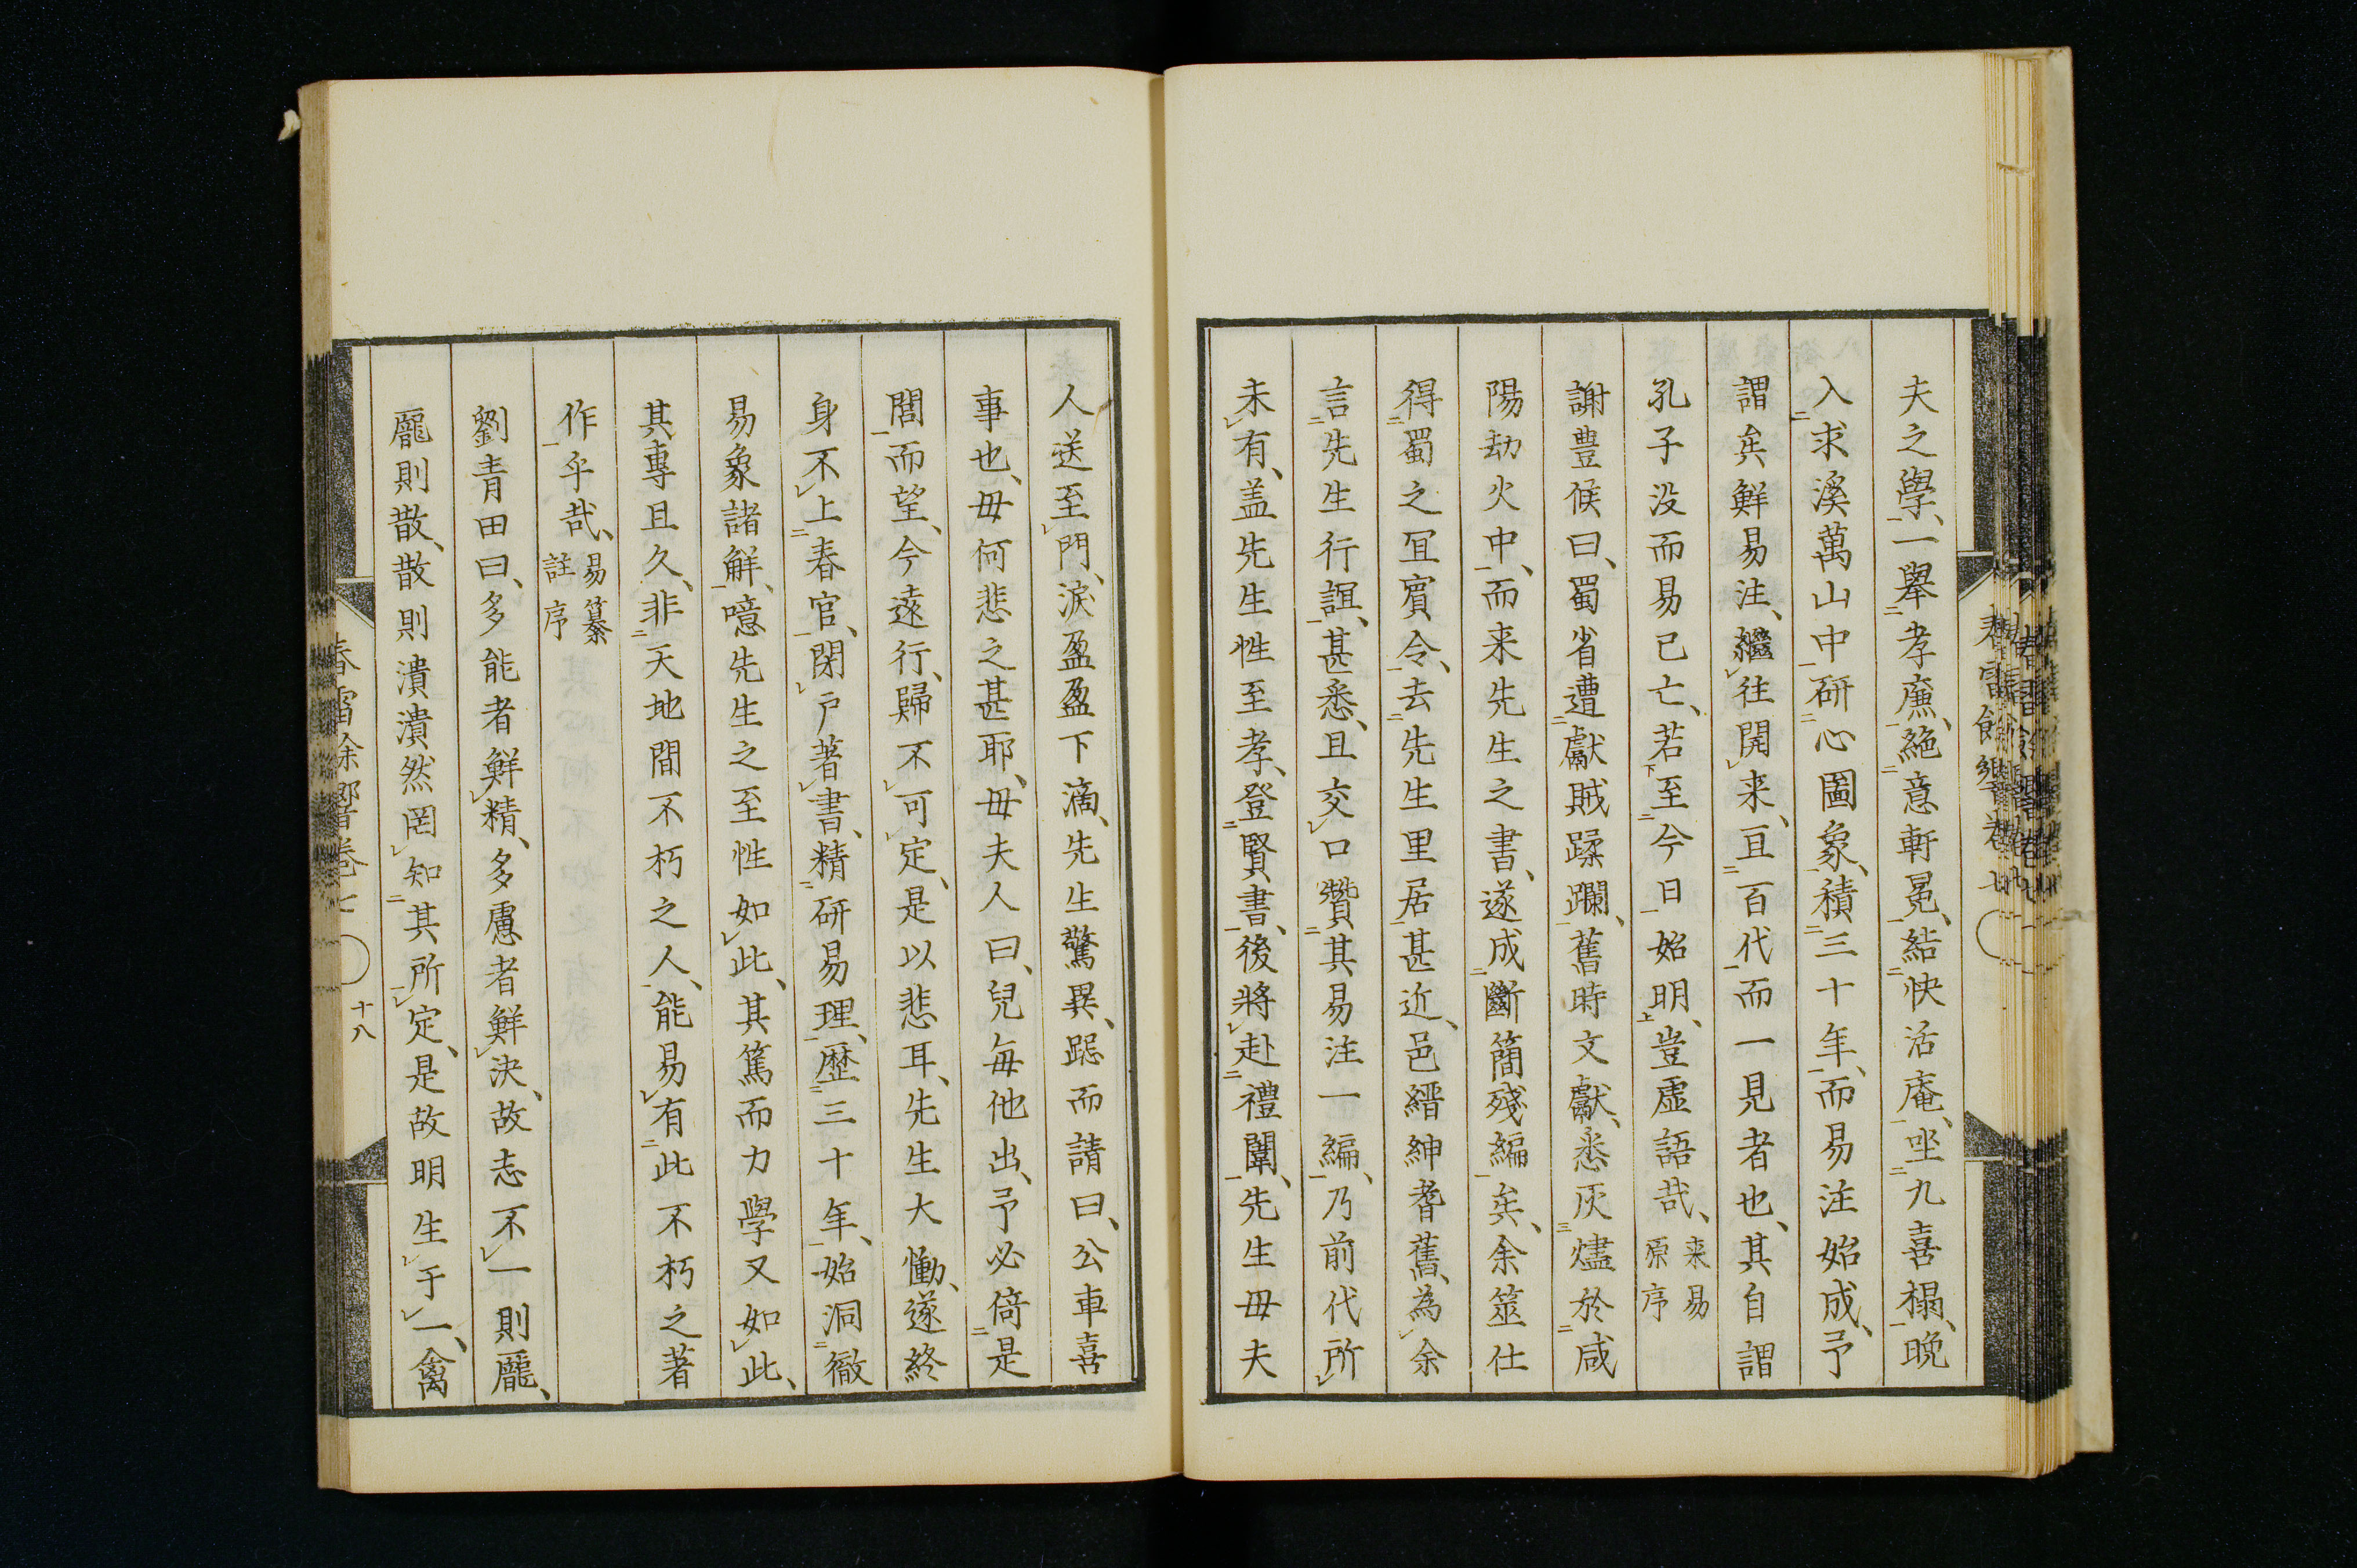 夫之學、一舉孝廉、絶意軒冕、結快活庵、坐九喜榻、晩
入求溪萬山中研心圖象、積三十年、而易注始成、予
謂矣鮮易注、繼往開来、亘百代而一見者也、其自謂
孔子没而易已亡、若至今日始明、豈虚語哉、来易原序
謝豊候曰、蜀省遭獻賊蹂躙、舊時文獻、悉灰燼於咸
陽劫火中、而来先生之書、遂成斷簡殘編矣、余筮仕
得蜀之冝賓令、去先生里居甚近、邑縉紳耆舊、為余
言先生行誼、甚悉、且交口贊其易注一編、乃前代所
未有、盖先生性至孝、登賢書、後將赴禮闈、先生毋夫
人送至門、淚盈盈下滴、先生驚異、跽而請曰、公車喜
事也、毋何悲之甚耶、毋夫人曰、兒毎他出、予必倚是
閭而望、今遠行、歸不可定、是以悲耳、先生大慟、遂終
身不上春官、閉戸著書、精研易理、歴三十年、始洞徹
易象諸觧、噫先生之至性如此、其篤而力學又如此、
其專且久、非天地間不朽之人、能易有此不朽之著
作乎哉、易纂註序
劉青田曰、多能者鮮精、多慮者鮮決、故志不一則龐、
龐則散、散則潰潰然罔知其所定、是故明生于一、禽
春雷餘響卷七
十八